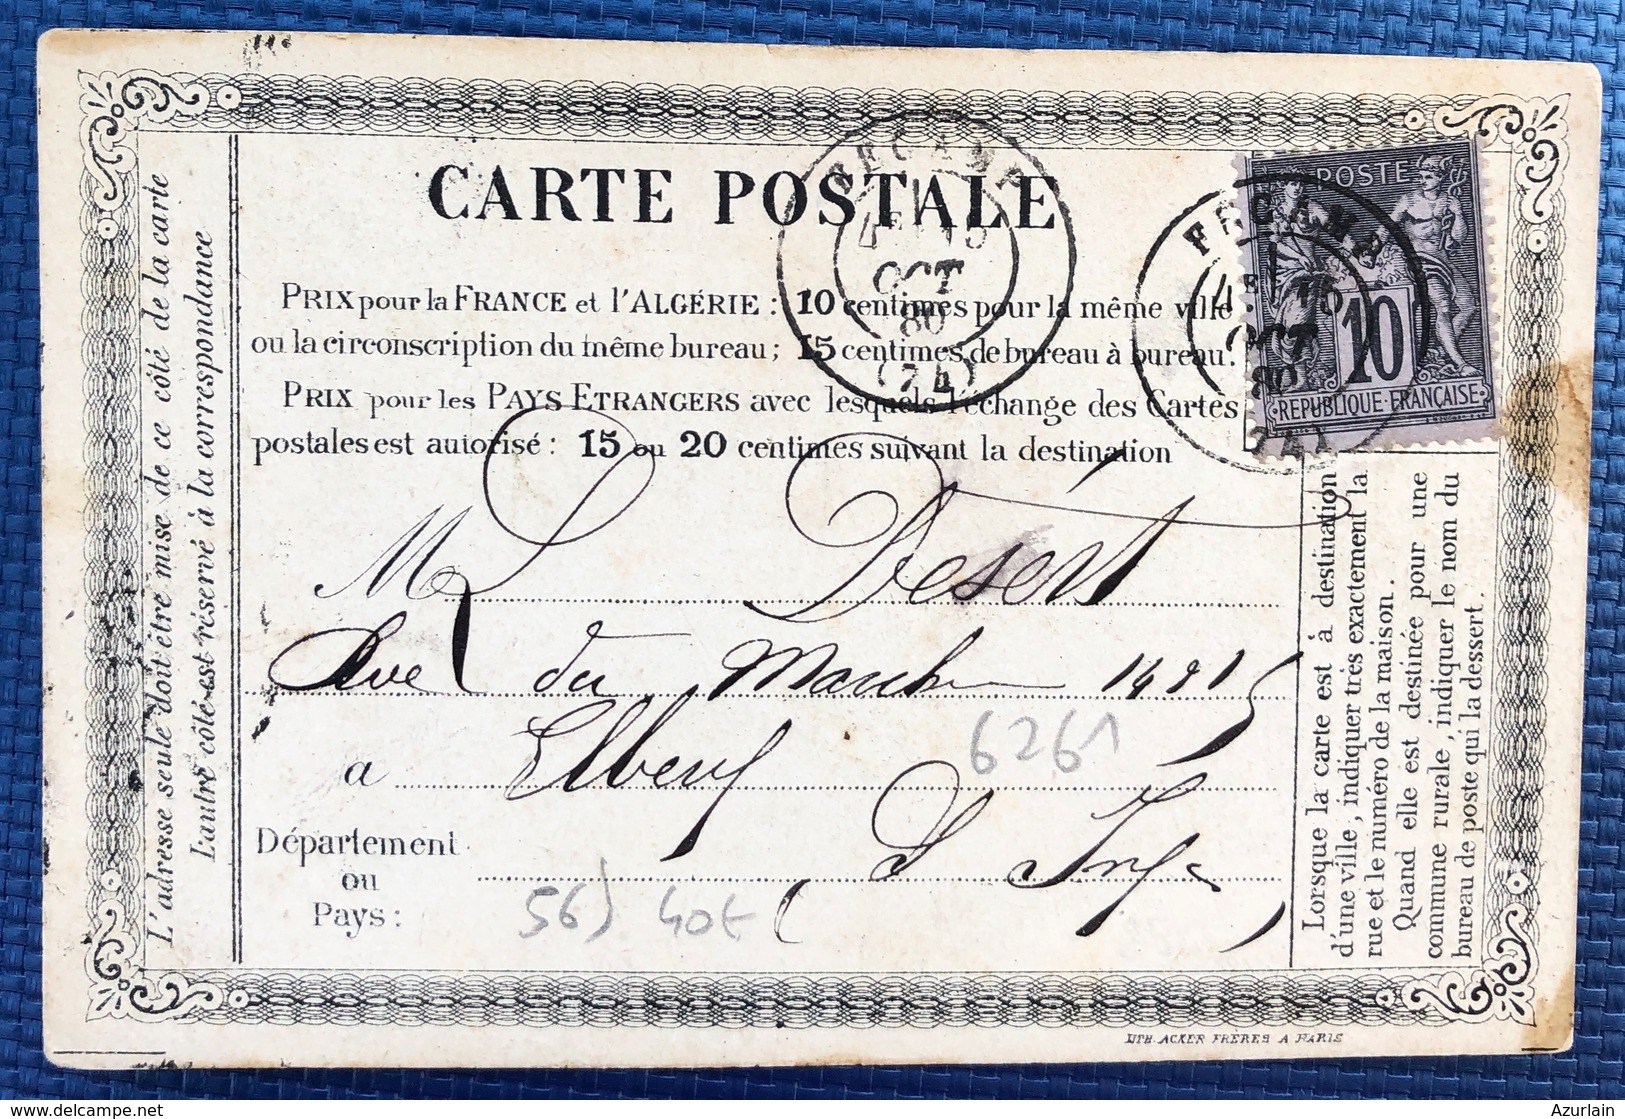 CARTE POSTALE
PRIX pour la FRANCE et l'ALGÉRIE : 10 centimes pour la même ville
ou la circonscription du même bureau; 15 centimes de bureau à bureau.
PRIX pour les PAYS ETRANGERS avec lesquels l'échange des Cartes
postales est autorisé : 15 ou 20 centimes suivant la destination
L'adresse seule doit être mise de ce côté de la carte
L'autre côté est réservé à la correspondance
FECAMP
4E
OCT
80
(74)
POSTE
10
REPUBLIQUE FRANÇAISE
FECAMP
4E
OCT
80
(74)
M Désert
Rue du Marché
a Elbeuf
6261
Département
ou
Pays :
(S Infre)
56) 40€
Lorsque la carte est à destination
d'une ville, indiquer très exactement la
rue et le numéro de la maison.
Quand elle est destinée pour une
commune rurale, indiquer le nom du
bureau de poste qui la dessert.
LITH. ACKER FRÈRES A PARIS
delcampe.net
Azurlain